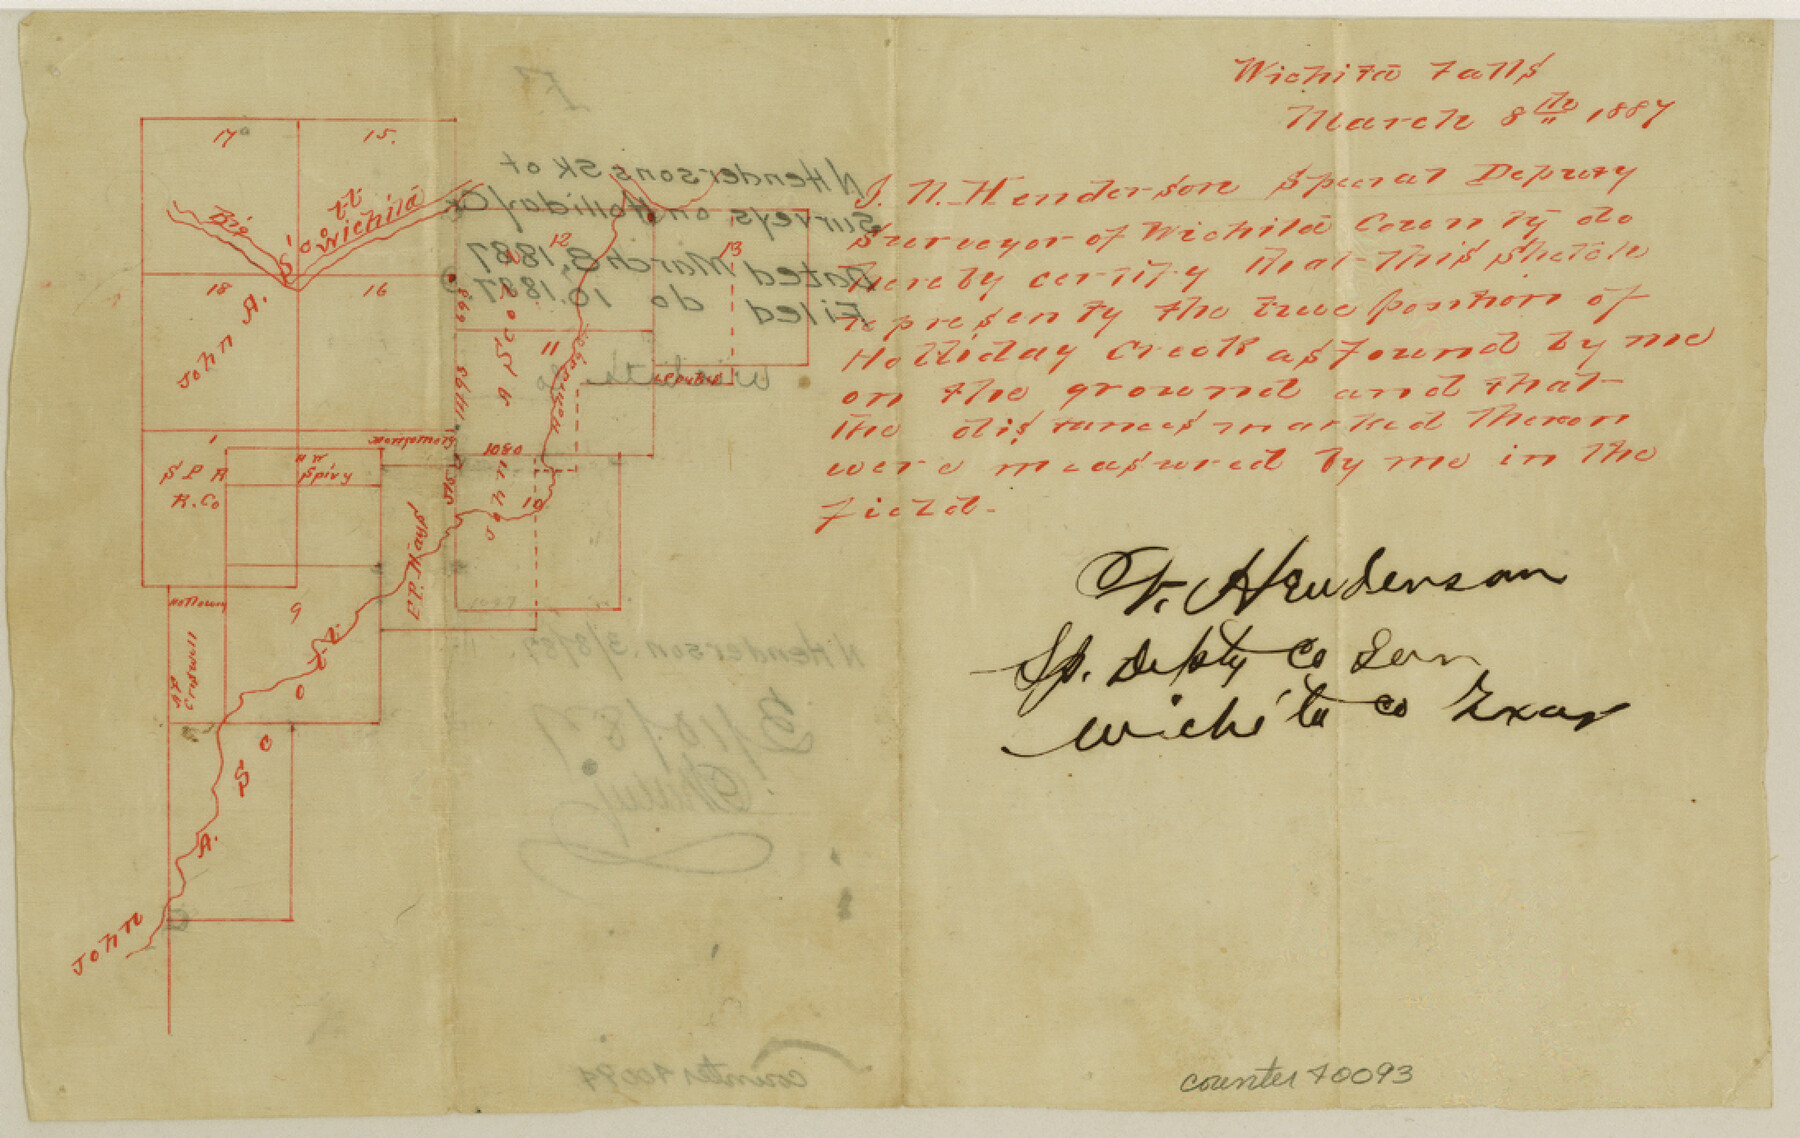 Wichita Falls
March 8th 1887
I. N. Henderson Special Deputy
Surveyor of Wichita County do
hereby certify that this sketch
represents the true position of
Holliday Creek as found by me
on the ground and that
the distances marked theron
were measured by me in the
field.
N. Henderson
Sp. Depty Co Sur
Wichita Co Texas
counter 40093
17
15.
Big
Wichita
John A. Scott
18
16
12
13
11
10
9
1
S P R
R. Co
Montgomery
H W
Spivy
E.P. Hays
1080
Holliday
John A. Scott
Creswell
N Hendersons sk of
Surveys on Holliday Ck
Dated March 8, 1887
Filed do 10. 1887
Wichita Co
N Henderson 3/8/87.
3/10/87
counter 40094